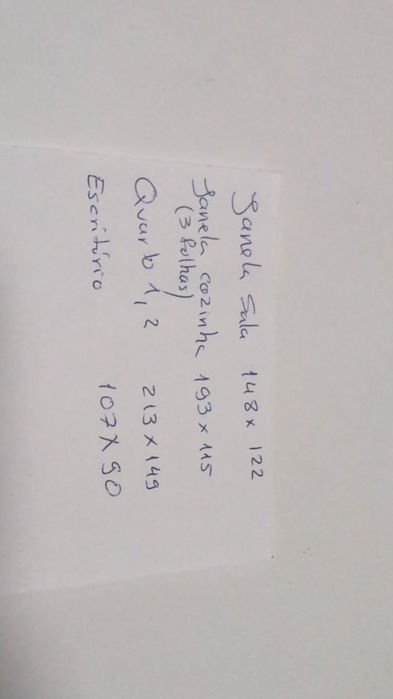 Janela Sala 148 x 122
Janela cozinha 193 x 115
(3 folhas)
Quarto 1, 2 213 x 149
Escritório 107 x 90